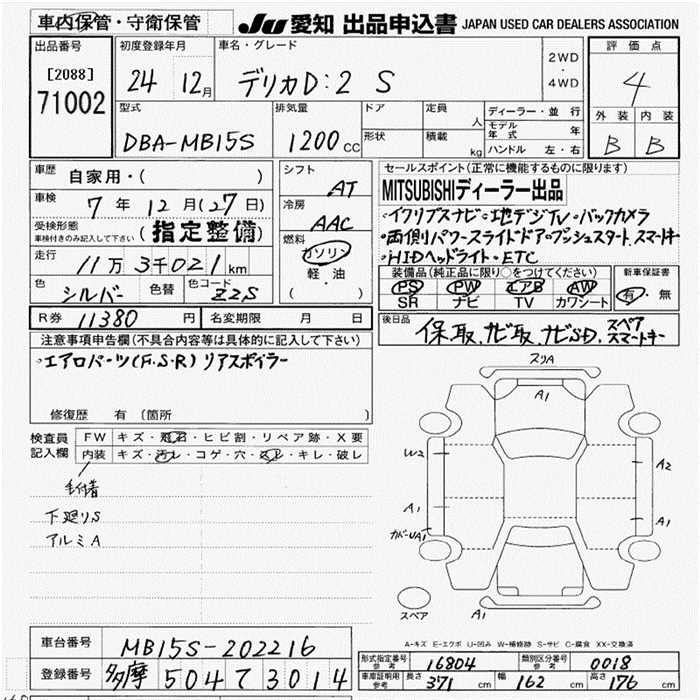 車内保管・守衛保管
JU 愛知 出品申込書 JAPAN USED CAR DEALERS ASSOCIATION
出品番号
[2088]
71002
初度登録年月
24 12月
車名・グレード
デリカD:2 S
2WD
・
4WD
評価点
4
外装 内装
B B
型式
DBA-MB15S
排気量
1200cc
ドア
形状
定員 人
積載 kg
ディーラー・並行
モデル年式 年
ハンドル 左・右
車歴
自家用・( )
車検
7年12月(27日)
受検形態
車検付きのみ記入して下さい
(指定整備)
走行
11万3千021km
色
シルバー
色替
色コード
Z2S
シフト
AT
冷房
AAC
燃料
ガソリン
軽・油
( )
セールスポイント(正常に機能するものに限ります)
MITSUBISHIディーラー出品
・イクリプスナビ・地デジTV・バックカメラ
・両側パワースライドドア・プッシュスタート スマートキー
・HIDヘッドライト・ETC
装備品(純正品に限り○をつけてください)
PS PW エアB AW
SR ナビ TV カワシート
新車保証書
有・無
R券 11380円
名変期限 月 日
後日品
保、取、ナビ取、ナビSD、スペア
スマートキー
注意事項申告欄(不具合内容等は具体的に記入して下さい)
・エアロパーツ(F・S・R)リアスポイラー
修復歴 有(箇所 )
検査員
記入欄
FW キズ・飛石・ヒビ割・リペア跡・X要
内装 キズ・汚レ・コゲ・穴・スレ・キレ・破レ
下廻りS
アルミA
スリA
A1
W2
A2
A1
A1
カバーUA1
スペア
A1
A-キズ E-エクボ U-凹み W-補修跡 S-サビ C-腐食 XX-交換済
車台番号
MB15S-202216
登録番号
多摩 504 て 3014
形式指定番号
参考
16804
類別区分番号
参考
0018
車庫証明用
参考
長さ 371 cm 幅 162 cm 高さ 176 cm